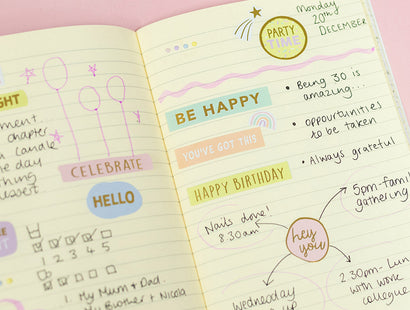 GHT
ment
chapter
candle
the day
thing
dessert
CELEBRATE
HELLO
1 2 3 4 5
1. My Mum + Dad.
My Brother + Nicola
PARTY
TIME
Monday
20th
DECEMBER
BE HAPPY
YOU'VE GOT THIS
HAPPY BIRTHDAY
• Being 30 is
amazing...
• oppourtunities
to be taken
• Always grateful
Nails done!
8:30am
hey
you
5pm-family
gathering
2:30pm- Lun
with work
collegue
Wednesday